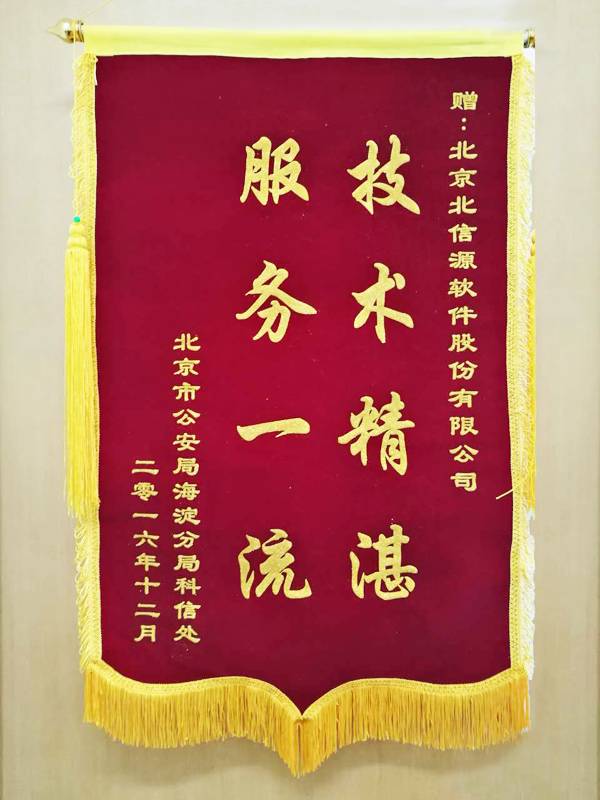 赠：北京北信源软件股份有限公司
技术精湛
服务一流
北京市公安局海淀分局科信处
二零一六年十二月